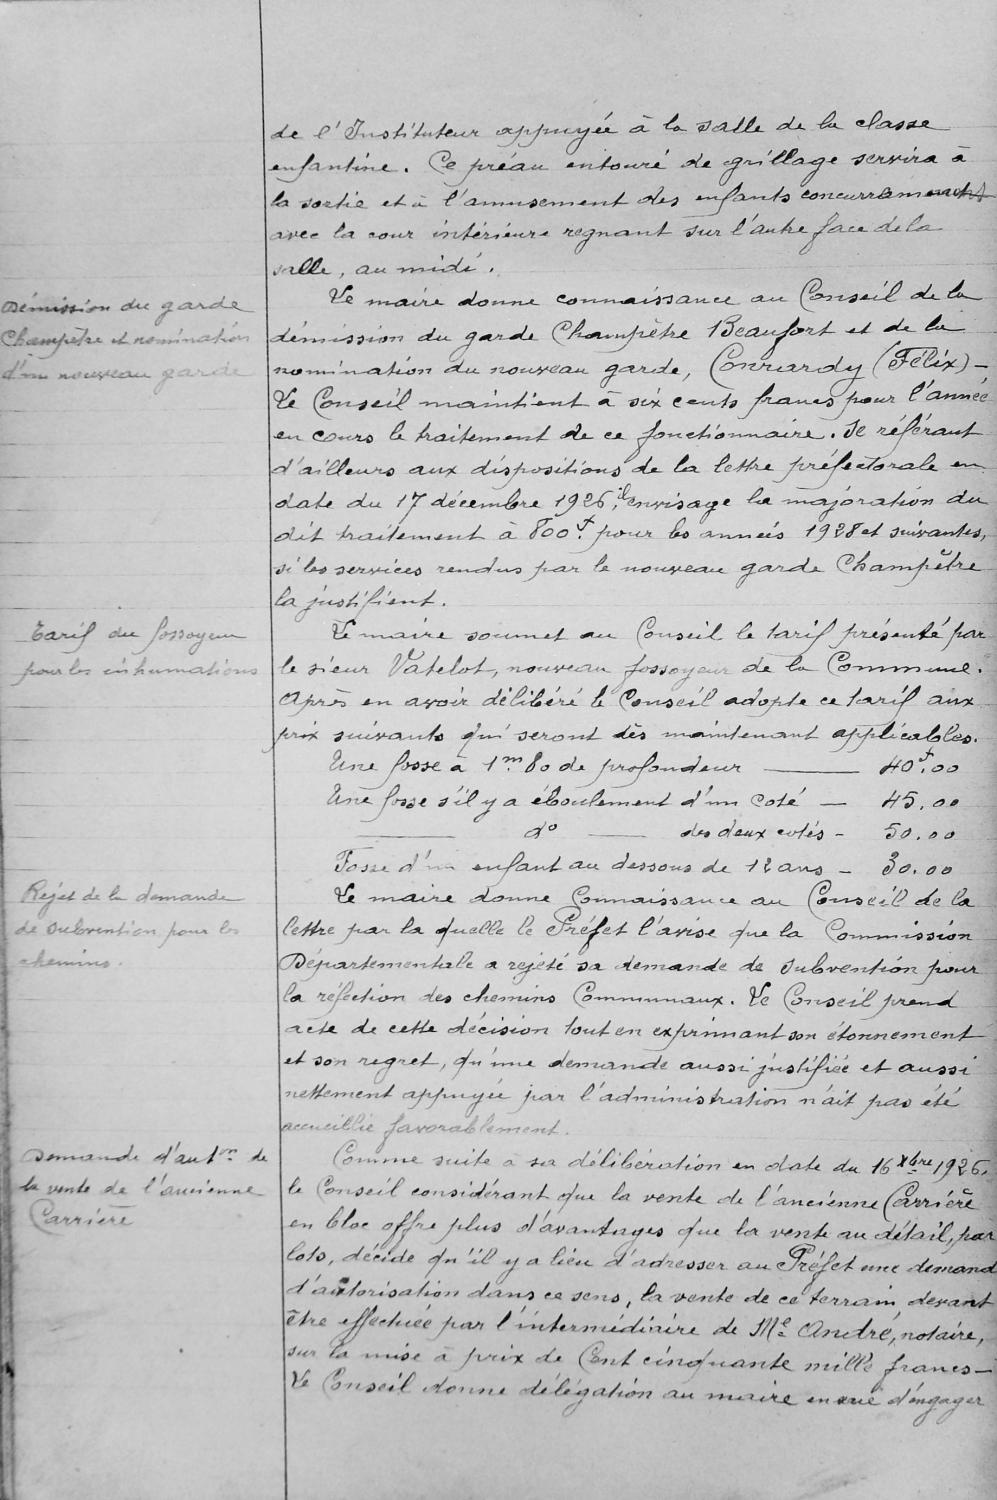 de l'Instituteur appuyée à la salle de la classe
enfantine. Ce préau entouré de grillage servira à
la sortie et à l'amusement des enfants concurramment
avec la cour intérieure regnant sur l'autre face de la
salle, au midi.
Démission du garde
Champêtre et nomination
d'un nouveau garde
Le maire donne connaissance au Conseil de la
démission du garde Champêtre Beaufort et de la
nomination du nouveau garde, Conrardy (Félix) -
Le Conseil maintient à six cents francs pour l'année
en cours le traitement de ce fonctionnaire. Se référant
d'ailleurs aux dispositions de la lettre préfectorale en
date du 17 décembre 1926, il envisage la majoration du
dit traitement à 800f. pour les années 1928 et suivantes,
si les services rendus par le nouveau garde Champêtre
la justifient.
Tarif du fossoyeur
pour les inhumations
Le maire soumet au Conseil le tarif présenté par
le sieur Vatelot, nouveau fossoyeur de la Commune.
Après en avoir délibéré le Conseil adopte ce tarif aux
prix suivants qui seront dès maintenant applicables.
Une fosse à 1m.80 de profondeur — 40f.00
Une fosse s'il y a éboulement d'un coté — 45.00
— do — des deux cotés - 50.00
Fosse d'un enfant au dessous de 12 ans - 30.00
Rejet de la demande
de subvention pour les
chemins.
Le maire donne Connaissance au Conseil de la
lettre par la quelle le Préfet l'avise que la Commission
Départementale a rejeté sa demande de subvention pour
la réfection des chemins Communaux. Le Conseil prend
acte de cette décision tout en exprimant son étonnement
et son regret, qu'une demande aussi justifiée et aussi
nettement appuyée par l'administration n'ait pas été
accueillie favorablement.
Demande d'auton de
la vente de l'ancienne
Carrière
Comme suite à sa délibération en date du 16 Xbre 1926,
le Conseil considérant que la vente de l'ancienne Carrière
en bloc offre plus d'avantages que la vente au détail, par
lots, décide qu'il y a lieu d'adresser au Préfet une demand
d'autorisation dans ce sens, la vente de ce terrain, devant
être effectuée par l'intermédiaire de Me André, notaire,
sur la mise à prix de Cent cinquante mille francs -
Le Conseil donne délégation au maire en vue d'engager